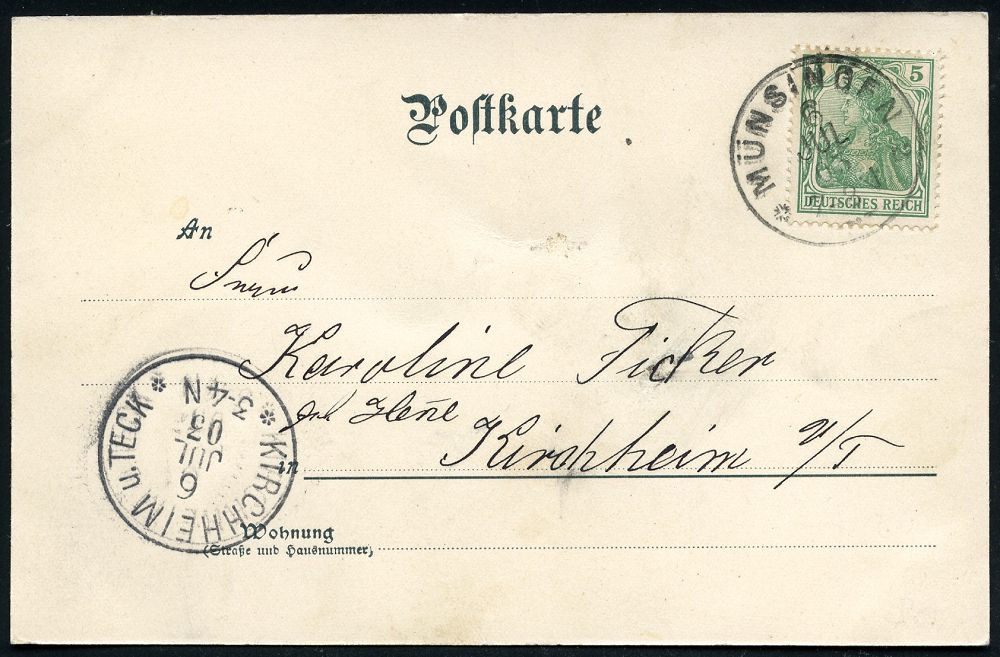 Postkarte
MÜNSINGEN
6
JUL
5
DEUTSCHES REICH
An
Karoline Ficker
Kirchheim u/T
in
KIRCHHEIM u. TECK
6
JUL
03
3-4 N
Wohnung
(Straße und Hausnummer)